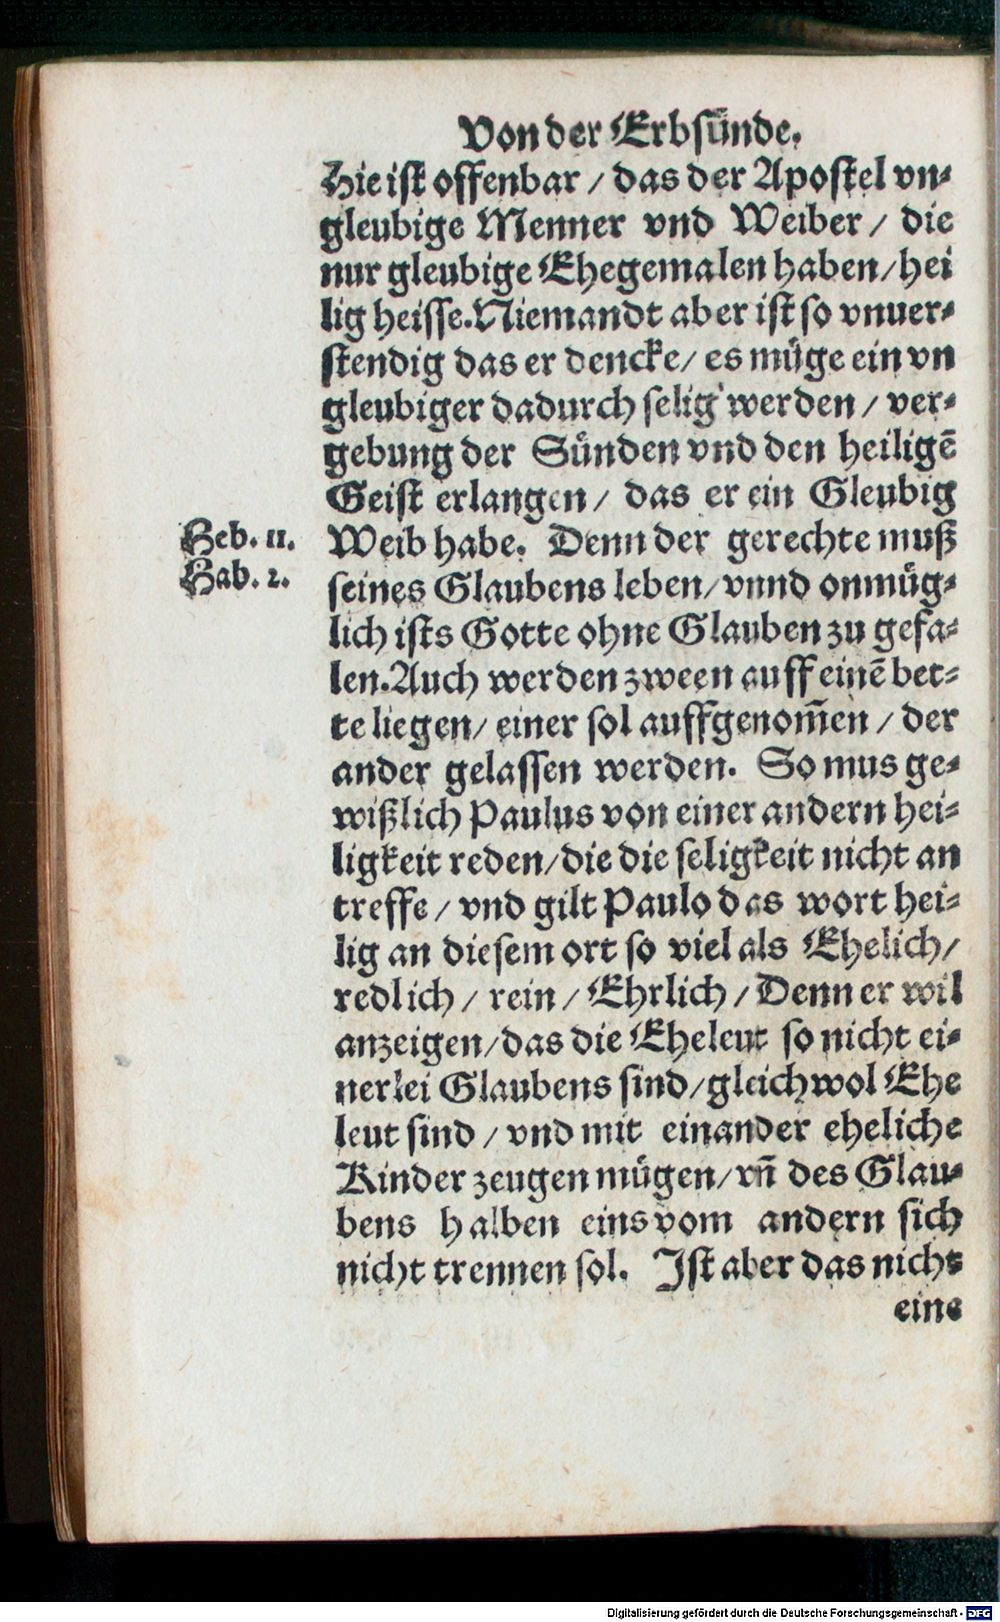 Von der Erbsünde.
Hie ist offenbar / das der Apostel vn-
gleubige Menner vnd Weiber / die
nur gleubige Ehegemalen haben / hei
lig heisse. Niemandt aber ist so vnuer-
stendig das er dencke / es müge ein vn
gleubiger dadurch selig werden / ver-
gebung der Sünden vnd den heiligē
Geist erlangen / das er ein Gleubig
Heb. 11.
Hab. 2.
Weib habe. Denn der gerechte muß
seines Glaubens leben / vnnd onmüg-
lich ists Gotte ohne Glauben zu gefa-
len. Auch werden zween auff einē bet-
te liegen / einer sol auffgenom̄en / der
ander gelassen werden. So mus ge-
wißlich Paulus von einer andern hei-
ligkeit reden / die die seligkeit nicht an
treffe / vnd gilt Paulo das wort hei-
lig an diesem ort so viel als Ehelich /
redlich / rein / Ehrlich / Denn er wil
anzeigen / das die Eheleut so nicht ei-
nerlei Glaubens sind / gleich wol Ehe
leut sind / vnd mit einander eheliche
Kinder zeugen mügen / vn̄ des Glau-
bens halben eins vom andern sich
nicht trennen sol. Ist aber das nicht
eine
Digitalisierung gefördert durch die Deutsche Forschungsgemeinschaft - DFG